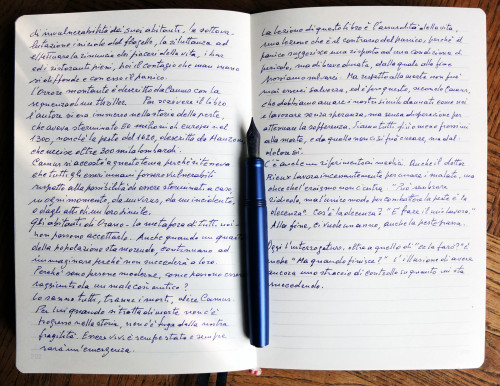 di invulnerabilità dei suoi abitanti, la sottova-
lutazione iniziale del flagello, la riluttanza ad
effettuare la rinuncia dei piaceri della vita, i bar
ed i ristoranti pieni, poi il contagio che man mano
si diffonde e con esso il panico.
L'orrore montante è descritto da Camus con la
sapienza di un thriller. Per scrivere il libro
l'autore si era immerso nella storia della peste,
che aveva sterminato 50 milioni di europei nel
'300, nonché la peste del 1630, descritta da Manzoni
che uccise oltre 300 mila lombardi.
Camus si accosta a questo tema perché riteneva
che tutti gli esseri umani fossero vulnerabili
rispetto alla possibilità di essere sterminati a caso
in ogni momento, da un virus, da un incidente,
o dagli atti di un loro simile.
Gli abitanti di Orano - la metafora di tutti noi -
non possono accettarlo. Anche quando un quarto
della popolazione sta morendo, continuano ad
immaginare perché non succederà a loro.
Perché sono persone moderne, come possono essere
raggiunti da un male così antico?
Lo sanno tutti, tranne i morti, dice Camus.
Per lui quando si tratta di morte non c'è
progresso nella storia, non c'è fuga dalla nostra
fragilità. Essere vivi è sempre stata e sempre
sarà un'emergenza.
La lezione di questo libro è l'assurdità della vita,
una lezione che è il contrario del panico, perché il
panico suggerisce una risposta ad una condizione di
pericolo, ma di breve durata, dalla quale alla fine
possiamo salvarci. Ma rispetto alla morte non si è
mai ensi al salvezza, ed è per questo, secondo Camus,
che dobbiamo amare i nostri simili dannati come noi
e lavorare senza speranza, ma senza disperazione per
attenuare la sofferenza. Siamo tutti più o meno prossimi
alla morte, e da quello non ci può essere mai del
C'è anche un riferimento ai medici. Anche il dottor
Rieux lavora incessantemente per curare i malati, ma
dice che l'eroismo non c'entra. "Può sembrare
ridicola, ma l'unico modo per combattere la peste è la
decenza". Cos'è la decenza? "È fare il mio lavoro."
Alla fine, ci vuole un anno, anche la peste passa.
Oggi l'interrogativo, oltre a quello di "ce la farò?" è
anche "Ma quando finisce?" L'illusione di avere
ancora uno straccio di controllo su quanto ci sta
succedendo.